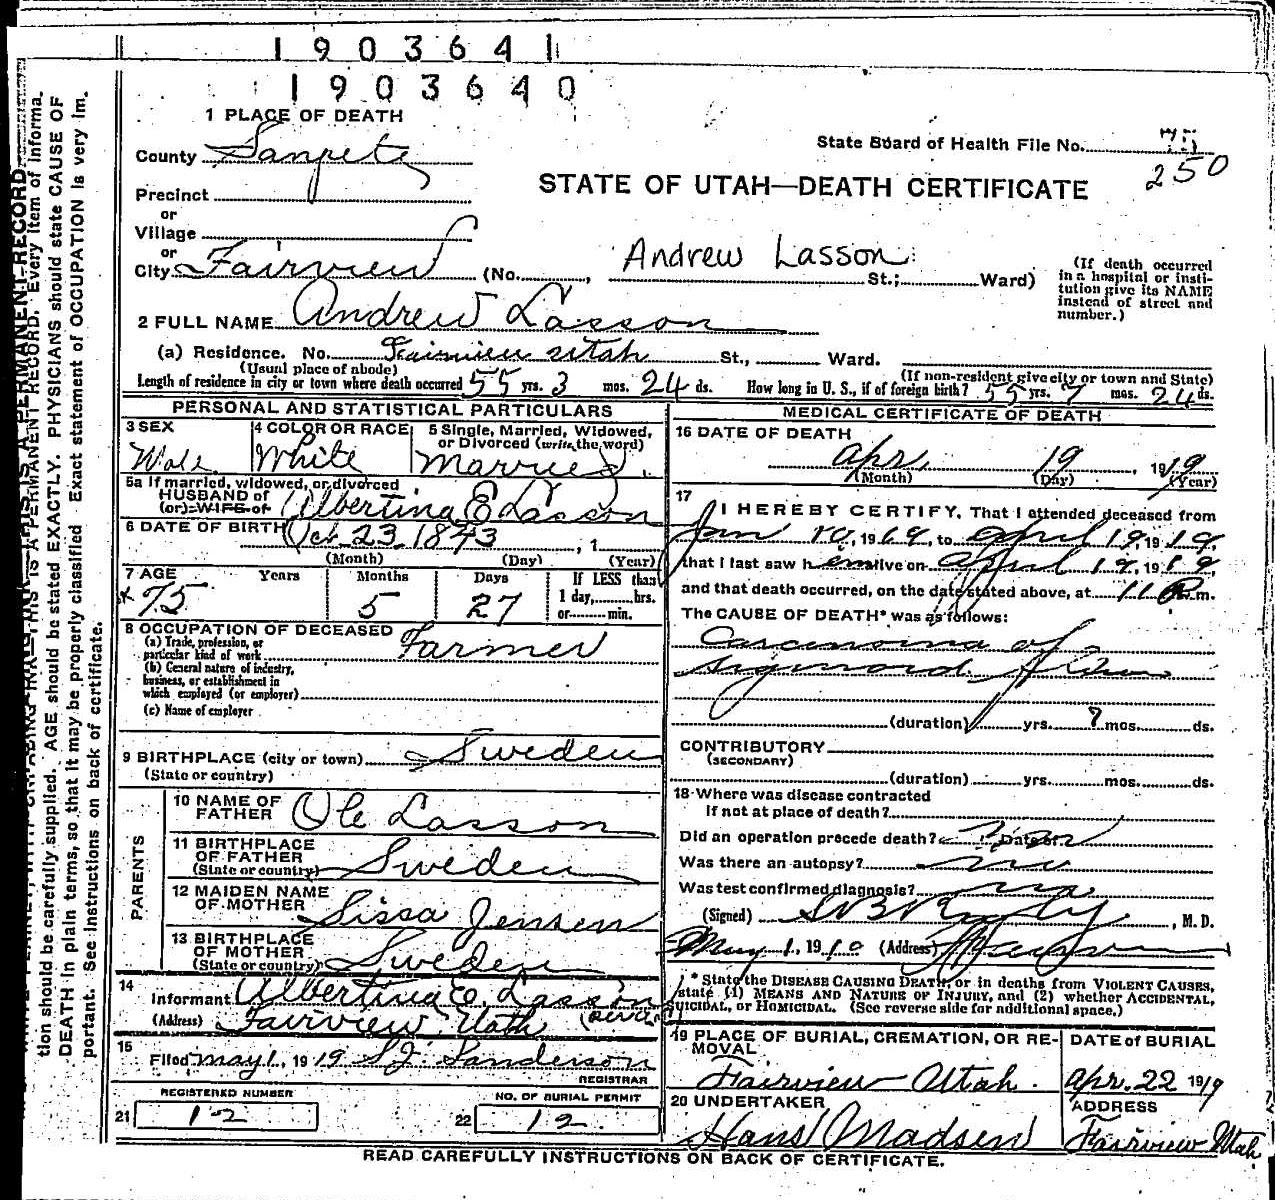 1903641
1903640
1 PLACE OF DEATH
State Board of Health File No. 75
250
County Sanpete
STATE OF UTAH—DEATH CERTIFICATE
Precinct
or
Village
or
City Fairview (No. , Andrew Lasson St.; Ward)
(If death occurred in a hospital or institution give its NAME instead of street and number.)
2 FULL NAME Andrew Lasson
(a) Residence. No. Fairview Utah St., Ward.
(Usual place of abode) (If non-resident give city or town and State)
Length of residence in city or town where death occurred 55 yrs. 3 mos. 24 ds. How long in U. S., if of foreign birth? 55 yrs. 7 mos. 24 ds.
PERSONAL AND STATISTICAL PARTICULARS
3 SEX 4 COLOR OR RACE 5 Single, Married, Widowed, or Divorced (write the word)
Male White Married
5a If married, widowed, or divorced
HUSBAND of
(or) WIFE of Albertina E Lasson
6 DATE OF BIRTH Oct 23 1843 , 1
(Month) (Day) (Year)
7 AGE Years Months Days If LESS than
1 day, hrs.
or min.
75 5 27
8 OCCUPATION OF DECEASED
(a) Trade, profession, or
particular kind of work Farmer
(b) General nature of industry,
business, or establishment in
which employed (or employer)
(c) Name of employer
9 BIRTHPLACE (city or town) Sweden
(State or country)
PARENTS
10 NAME OF
FATHER Ole Lasson
11 BIRTHPLACE
OF FATHER
(State or country) Sweden
12 MAIDEN NAME
OF MOTHER Sissa Jensen
13 BIRTHPLACE
OF MOTHER
(State or country) Sweden
14
Informant Albertina E. Lasson
(Address) Fairview Utah
15
Filed may 1, 1919 S. J. Sanderson
REGISTRAR
REGISTERED NUMBER
21 12
NO. OF BURIAL PERMIT
22 12
MEDICAL CERTIFICATE OF DEATH
16 DATE OF DEATH
Apr 19, 1919
(Month) (Day) (Year)
17
I HEREBY CERTIFY, That I attended deceased from
Jan 10, 1919, to April 19, 1919,
that I last saw h em alive on April 19, 1919
and that death occurred, on the date stated above, at 11 P m.
The CAUSE OF DEATH* was as follows:
Carcinoma of
sigmoid
(duration) yrs. 7 mos. ds.
CONTRIBUTORY
(SECONDARY)
(duration) yrs. mos. ds.
18 Where was disease contracted
If not at place of death?
Did an operation precede death? Date of
Was there an autopsy? no
Was test confirmed diagnosis? no
(Signed) , M. D.
May 1, 1919 (Address)
* State the DISEASE CAUSING DEATH, or in deaths from VIOLENT CAUSES,
state (1) MEANS AND NATURE OF INJURY, and (2) whether ACCIDENTAL,
SUICIDAL, or HOMICIDAL. (See reverse side for additional space.)
19 PLACE OF BURIAL, CREMATION, OR RE-
MOVAL
Fairview Utah.
DATE of BURIAL
Apr. 22 1919
20 UNDERTAKER
Hans Madsen
ADDRESS
Fairview Utah
READ CAREFULLY INSTRUCTIONS ON BACK OF CERTIFICATE.
THIS IS A PERMANENT RECORD. Every item of informa-
tion should be carefully supplied. AGE should be stated EXACTLY. PHYSICIANS should state CAUSE OF
DEATH in plain terms, so that it may be properly classified. Exact statement of OCCUPATION is very im-
portant. See instructions on back of certificate.